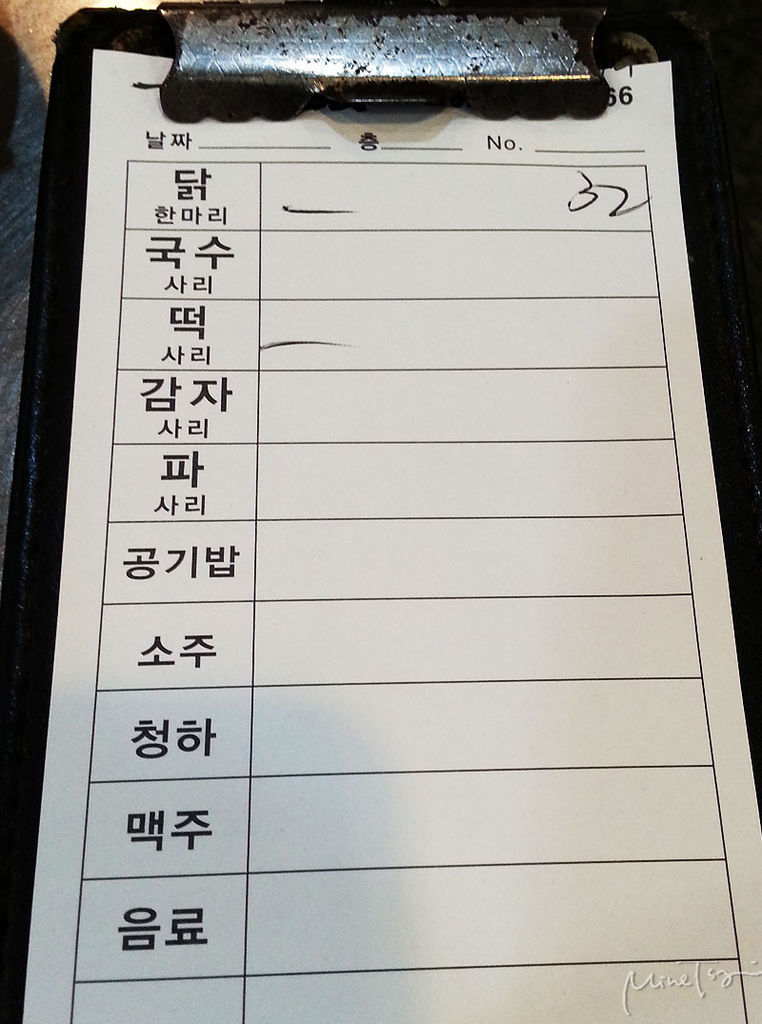 66
날짜 층 No.
닭 一 32
한마리
국수
사리
떡 一
사리
감자
사리
파
사리
공기밥
소주
청하
맥주
음료